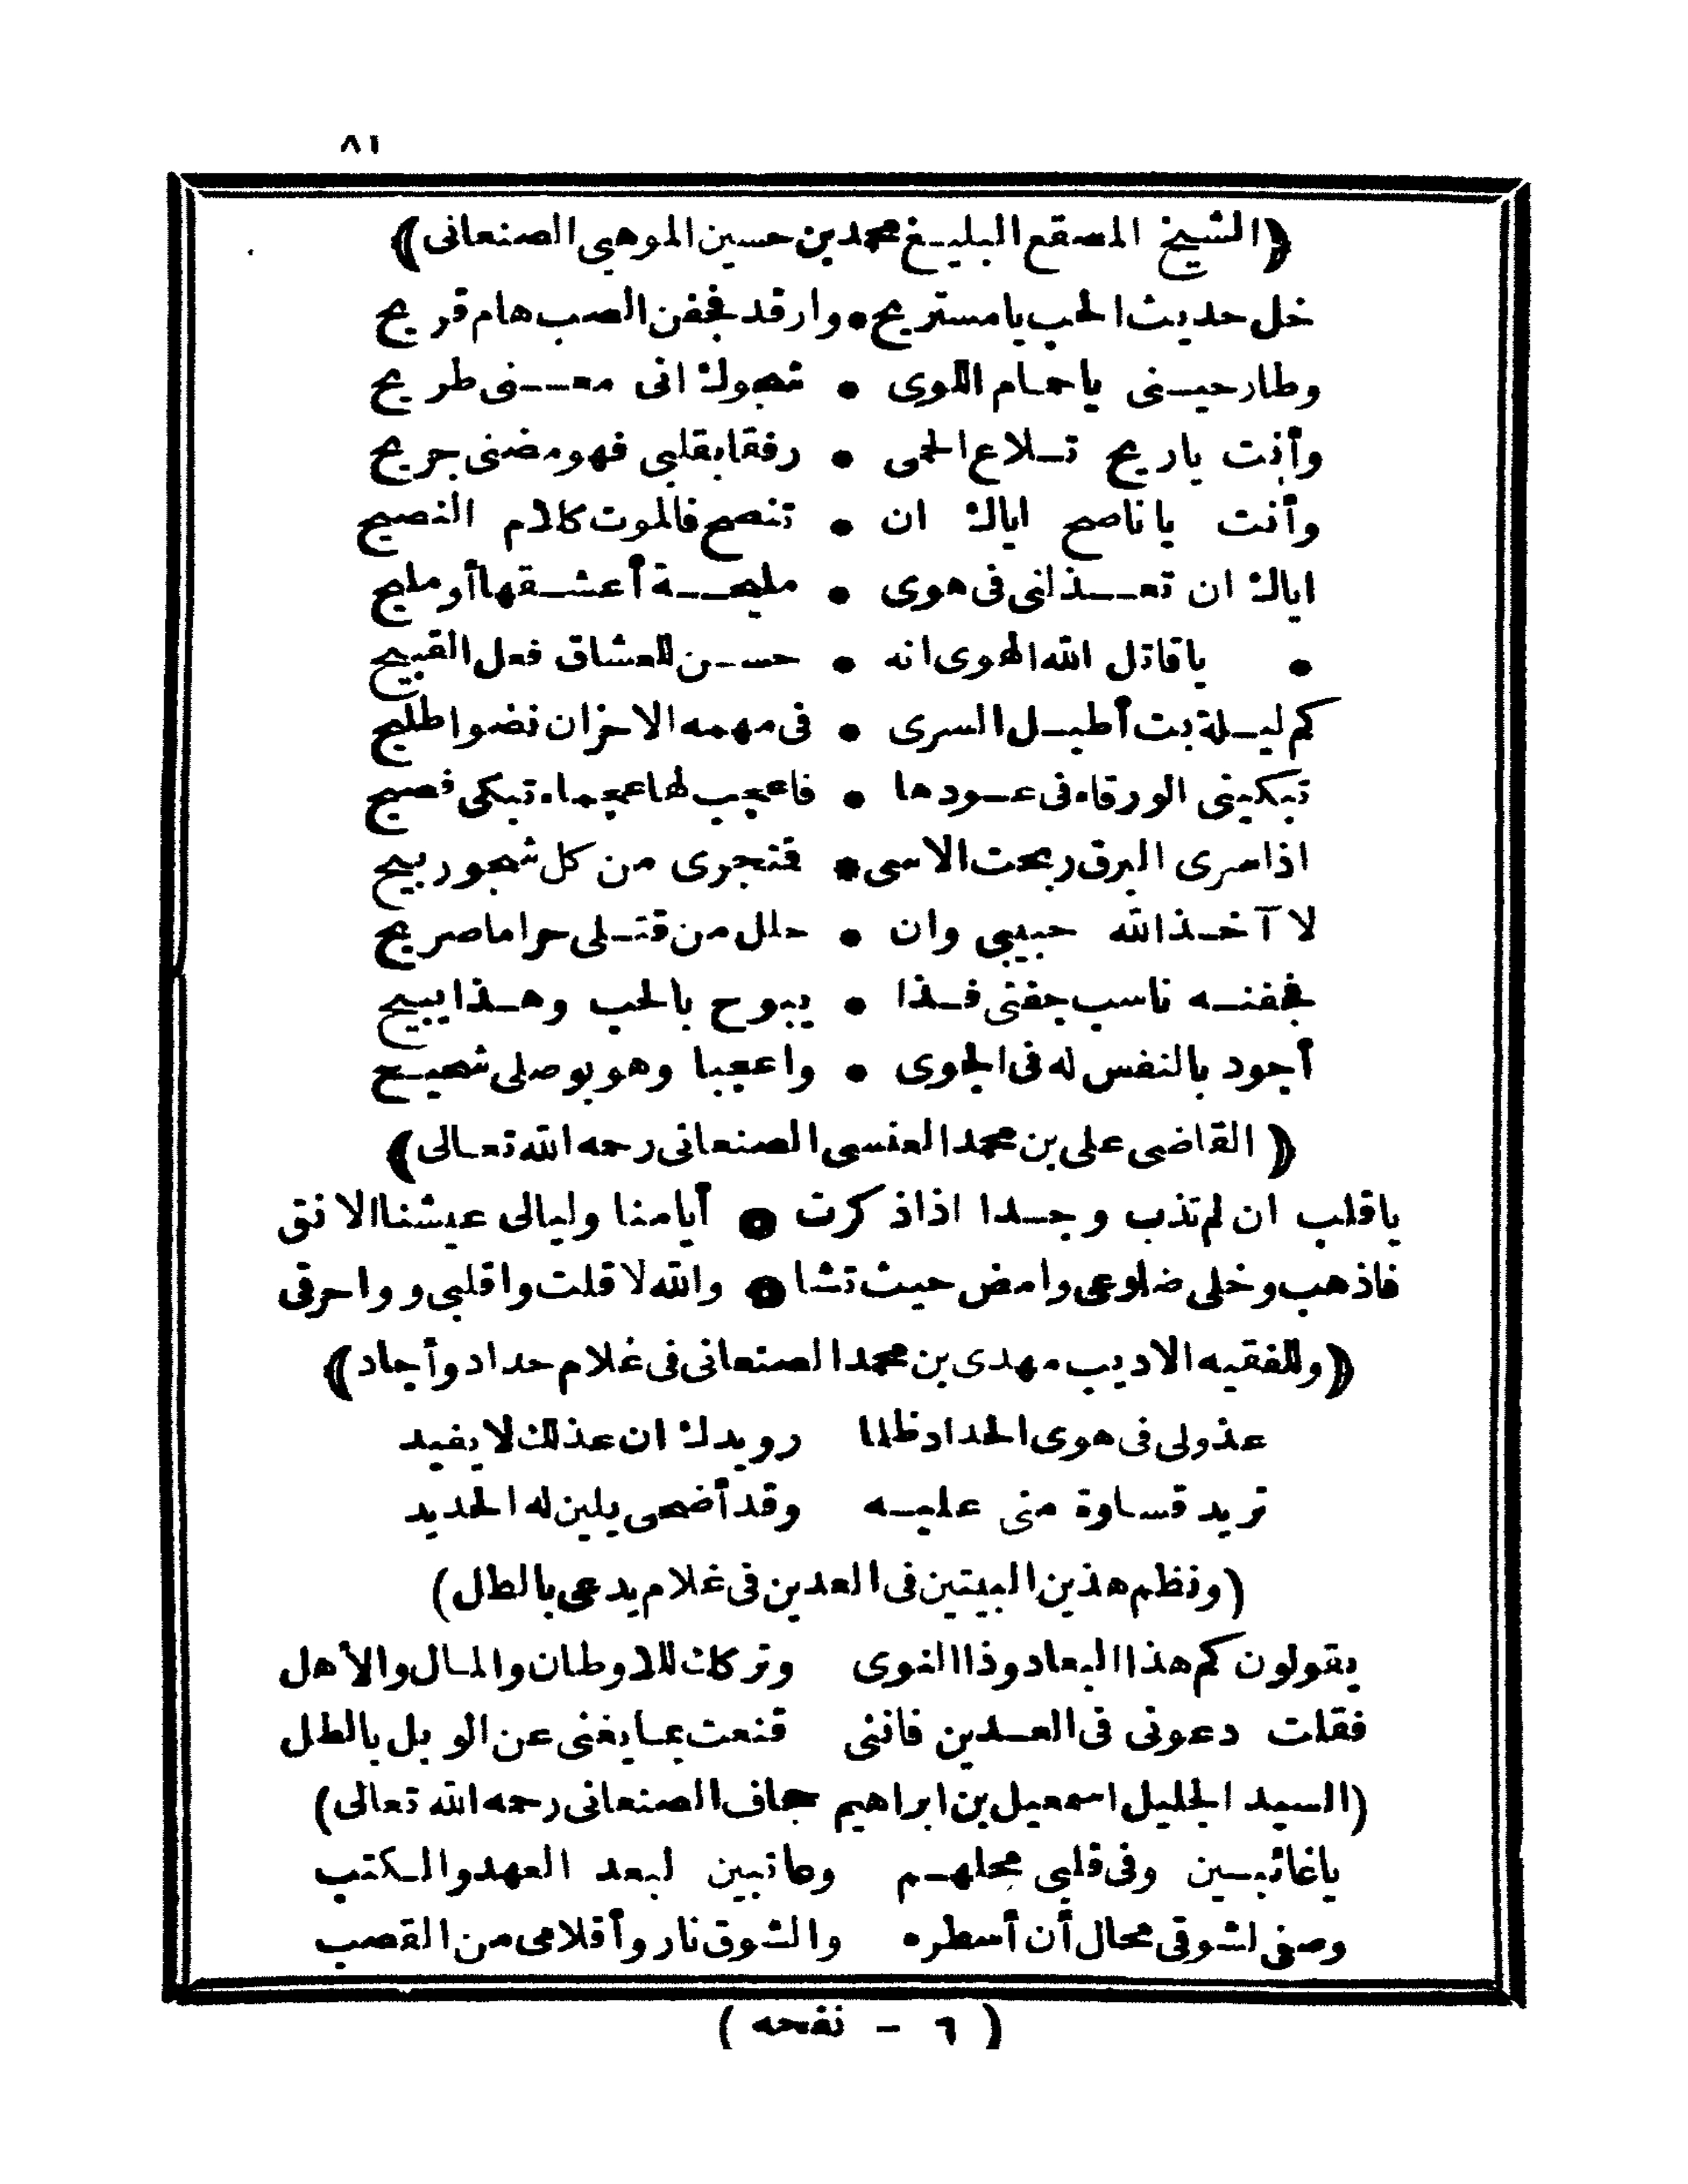 ٨١
﴿الشيخ المصقع البليغ محمد بن حسين الموهبى الصنعانى﴾
خل حديث الحب يا مستريح • وارقد فجفن الصب هام قريح
وطار حينى يا حمام اللوى • شجوك انى معنى طريح
وأنت يا ريح تلاع الحمى • رفقا بقلبى فهو مضنى جريح
وأنت يا ناصح اياك ان • تنصح فالموت كلام النصيح
اياك ان تعذلنى فى هوى • مليحة أعشقها أو مليح
• يا قاتل الله الهوى انه • حسن للعشاق فعل القبيح
كم ليلة بت أطيل السرى • فى مهمه الاحزان نضوا طليح
تبكينى الورقاء فى عودها • فاعجب لها عجماء تبكى فصيح
اذا سرى البرق ربحت الاسى • فتجرى من كل شجو ربيح
لا آخذ الله حبيبى وان • حلل من قتلى حراما صريح
فجفنه ناسب جفنى فذا • يبوح بالحب وهذا يبيح
أجود بالنفس له فى الجوى • واعجبا وهو بوصلى شحيح
﴿القاضى على بن محمد العنسى الصنعانى رحمه الله تعالى﴾
يا قلب ان لم تذب وجدا اذا ذكرت • أيامنا وليالى عيشنا الانق
فاذهب وخلى ضلوعى وامض حيث تشا • والله لا قلت واقلبى وواحرقى
﴿وللفقيه الاديب مهدى بن محمد الصنعانى فى غلام حداد وأجاد﴾
عذولى فى هوى الحداد ظلما رويدك ان عذلك لا يفيد
تريد قساوة منى عليه وقد أضحى يلين له الحديد
(ونظم هذين البيتين فى العدين فى غلام يدعى بالطل)
يقولون كم هذا البعاد وذا النوى وتركك للاوطان والمال والأهل
فقلت دعونى فى العدين فاننى قنعت بما يغنى عن الوبل بالطل
(السيد الجليل اسمعيل بن ابراهيم جحاف الصنعانى رحمه الله تعالى)
يا غائبين وفى قلبى محلهم وعاتبين لبعد العهد والكتب
وصفى لشوقى محال أن أسطره والشوق نار وأقلامى من القصب
( ٦ - نفحه )